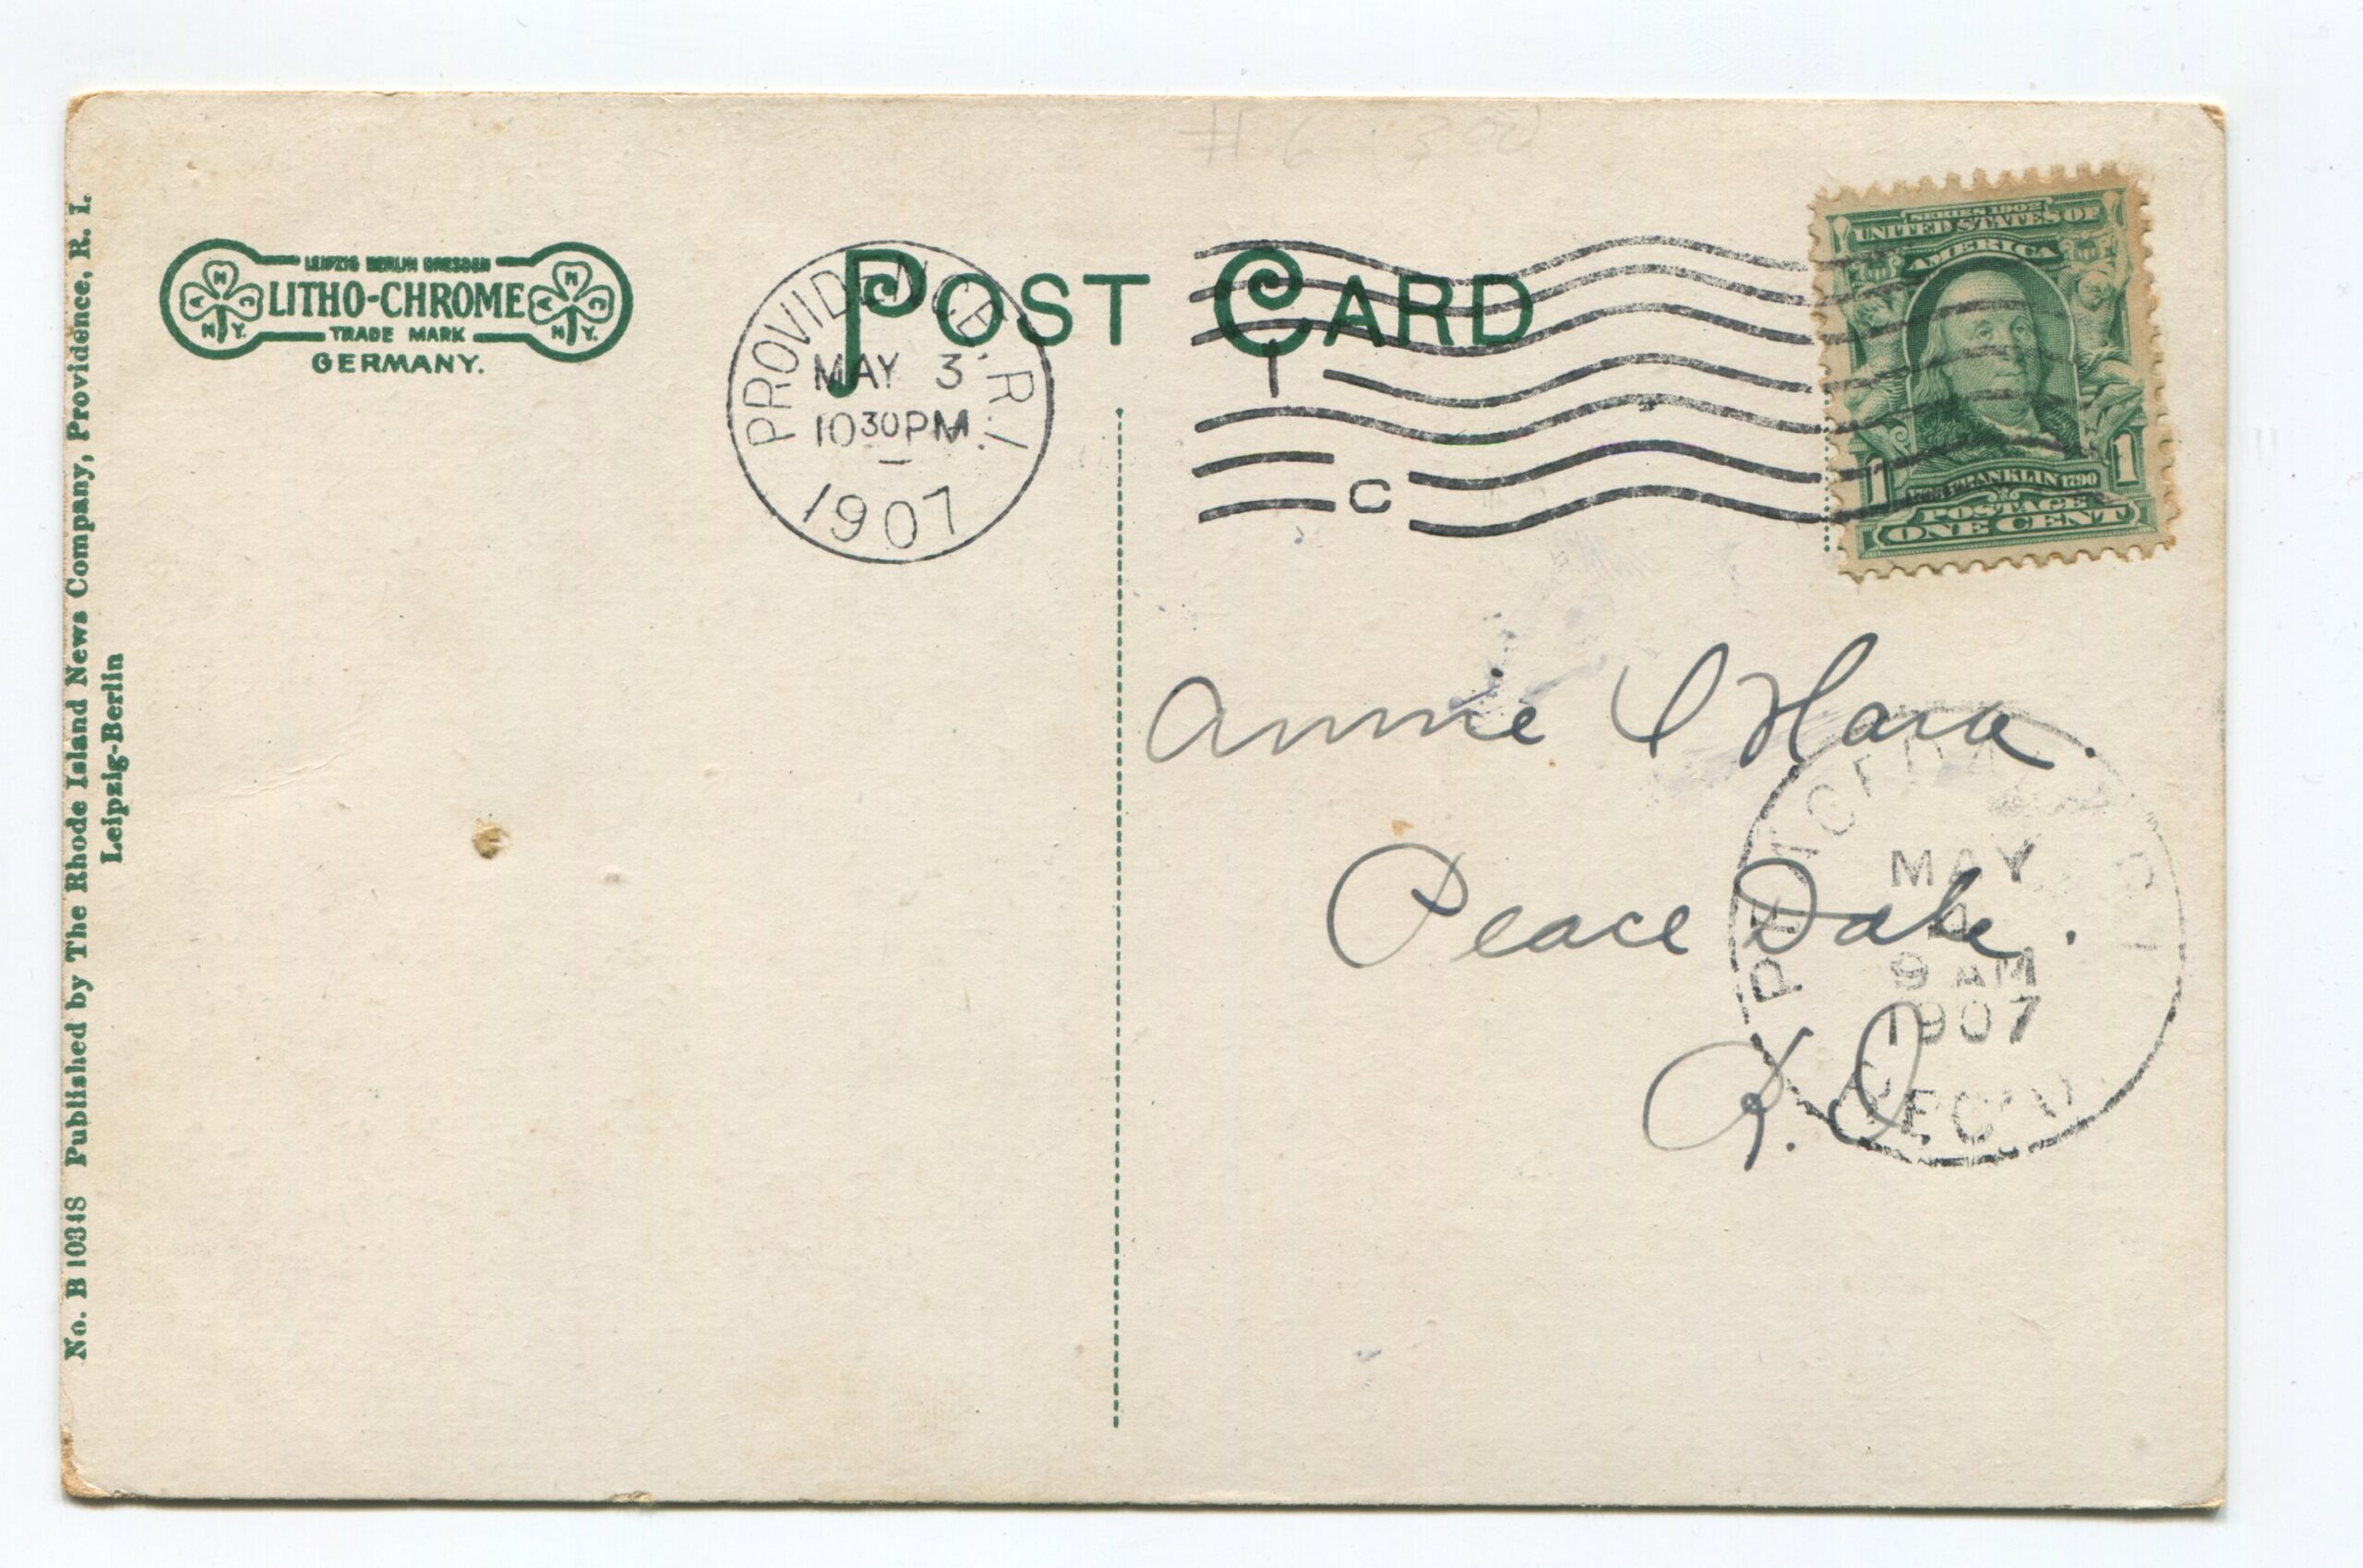 # 6 3.00
LEIPZIG BERLIN DRESDEN
LITHO-CHROME
TRADE MARK
GERMANY.
A N C
N.Y.
A N C
N.Y.
POST CARD
PROVIDENCE, R.I.
MAY 3
10 30 PM
1907
1
C
SERIES 1902
UNITED STATES OF
AMERICA
1 1
FRANKLIN 1790
POSTAGE
ONE CENT
No. B 10348 Published by The Rhode Island News Company, Providence, R. I.
Leipzig-Berlin
Annie O Hara.
Peace Dale.
R. I.
PEACEDALE R.I.
MAY
4
9 AM
1907
REC'D.